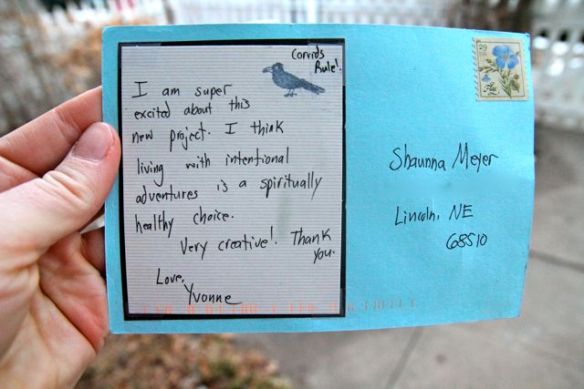 Corvids
Rule!
I am super
excited about this
new project. I think
living with intentional
adventures is a spiritually
healthy choice.
Very creative! Thank
you.
Love,
Yvonne
Shaunna Meyer
Lincoln, NE
68510